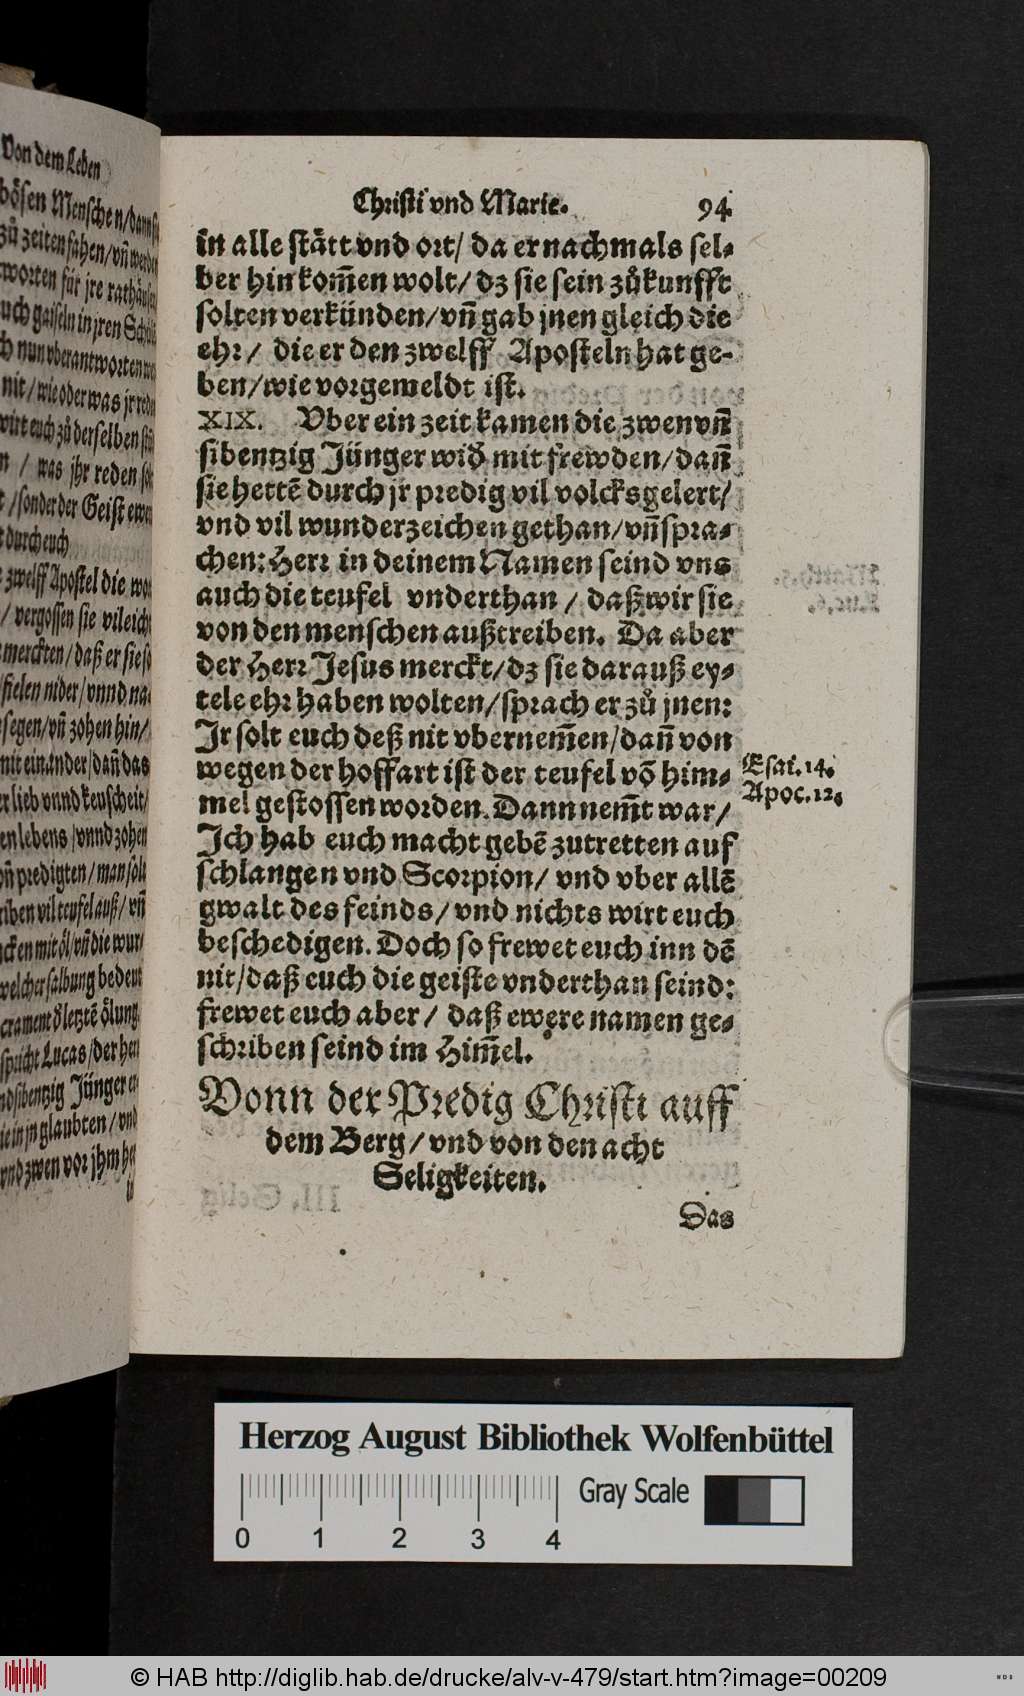 Von dem Leben
bösen Menschen/dann
zů zeiten fahen/vñ werden
worten für jre rathäuser
geiseln in jren
nun vberantworten
nit/wie oder was jr reden
wirt euch zů derselben
/ was jhr reden
/sonder der Geist
durch euch
zwelff Apostel die
/ vergossen sie vil
merckten/daß er sie so
fielen nider/vnnd na-
segen/vñ zohen hin/
mit einander/dañ das
lieb vnnd keuscheit/
lebens/vnnd zohen
predigten/man solt
vil teufel auß/vñ
mit öl/vñ die wur/
welcher salbung bedeut
letztē ölung
spricht Lucas/der herr
sibentzig Jünger er-
in jn glaubten/vnd
vnd zwen vor jhm her
Christi vnd Marie. 94
in alle stätt vnd ort/ da er nachmals sel-
ber hin kom̃en wolt/ dz sie sein zůkunfft
solten verkünden/vñ gab jnen gleich die
ehr/ die er den zwelff Aposteln hat ge-
ben/wie vorgemeldt ist.
XIX. Vber ein zeit kamen die zwen vñ
sibentzig Jünger wid' mit frewden/dañ
sie hettē durch jr predig vil volcks gelert/
vnd vil wunderzeichen gethan/vñ spra-
chen: Herr in deinem Namen seind vns
auch die teufel vnderthan / daß wir sie
von den menschen außtreiben. Da aber
der Herr Jesus merckt/dz sie darauß ey-
tele ehr haben wolten/sprach er zů jnen:
Jr solt euch deß nit vbernem̃en/dañ von
wegen der hoffart ist der teufel vō him-
mel gestossen worden. Dann nem̃t war/
Ich hab euch macht gebē zutretten auf
schlangen vnd Scorpion/ vnd vber allē
gwalt des feinds/vnd nichts wirt euch
beschedigen. Doch so frewet euch inn dē
nit/daß euch die geiste vnderthan seind:
frewet euch aber/ daß ewere namen ge-
schriben seind im Him̃el.
Esai. 14.
Apoc. 12.
Vonn der Predig Christi auff
dem Berg/vnd von den acht
Seligkeiten.
Das
Herzog August Bibliothek Wolfenbüttel
Gray Scale
0 1 2 3 4
© HAB http://diglib.hab.de/drucke/alv-v-479/start.htm?image=00209